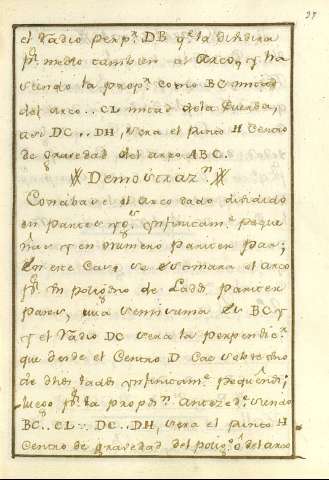 el radio perp.r DB q.e la dividira
p.r medio tambien al arco, y ha
siendo la prop.n como BC mitad
del arco.. CL mitad de la Cuerda,
asi DC.. DH, sera el punto H Centro
de gravedad del arco ABC.
Demostraz.n
Conzibase el arco dado dividido
en partes yg.s ynfinitam.e peque
ñas y en numero pariter par;
En este Caso se tomara el arco
p.r poligono de Lados pariter
pares, una semisuma es BC y
y el radio DC sera la perpendic.r
que desde el Centro D Cae sobre uno
de dhos lados ynfinitam.e pequeños;
luego p.r la propos.n antezed.e siendo
BC.. CL :: DC.. DH, sera el punto H
Centro de gravedad del polig.o ó del arco